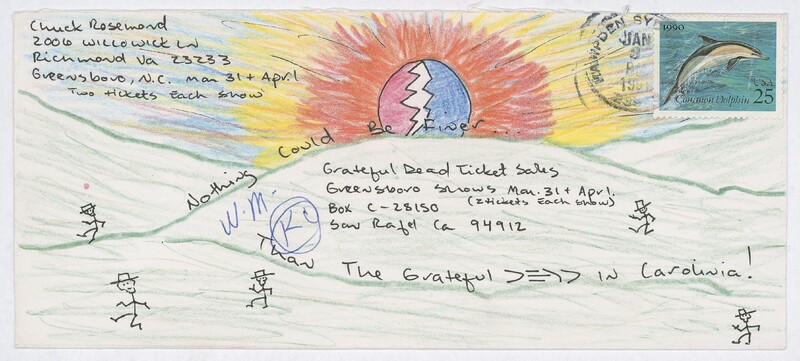 Chuck Rosemond
2006 Willowick Ln
Richmond Va 23233
Greensboro, N.C. Mar 31 + Apr. 1
Two Tickets Each Show
JAN
1991
1990
USA
Common Dolphin 25
Nothing Could Be Finer...
Grateful Dead Ticket Sales
Greensboro Shows Mar. 31 + Apr 1.
Box C-28150 (2 tickets Each Show)
San Rafel Ca 94912
W.M.
Than The Grateful in Carolinia!